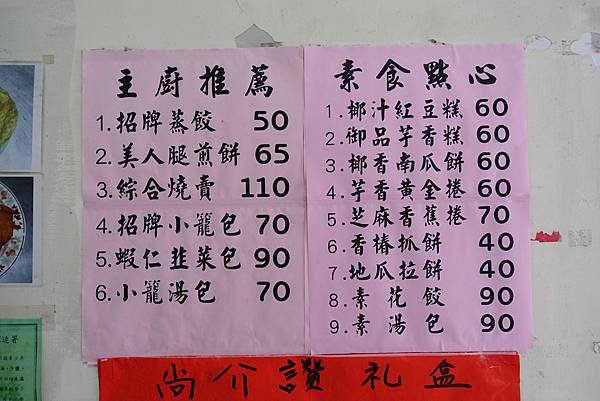 主廚推薦
1.招牌蒸餃 50
2.美人腿煎餅 65
3.綜合燒賣 110
4.招牌小籠包 70
5.蝦仁韭菜包 90
6.小籠湯包 70
素食點心
1.椰汁紅豆糕 60
2.御品芋香糕 60
3.椰香南瓜餅 60
4.芋香黃金捲 60
5.芝麻香蕉捲 70
6.香椿抓餅 40
7.地瓜拉餅 40
8.素花餃 90
9.素湯包 90
尚介讚禮盒